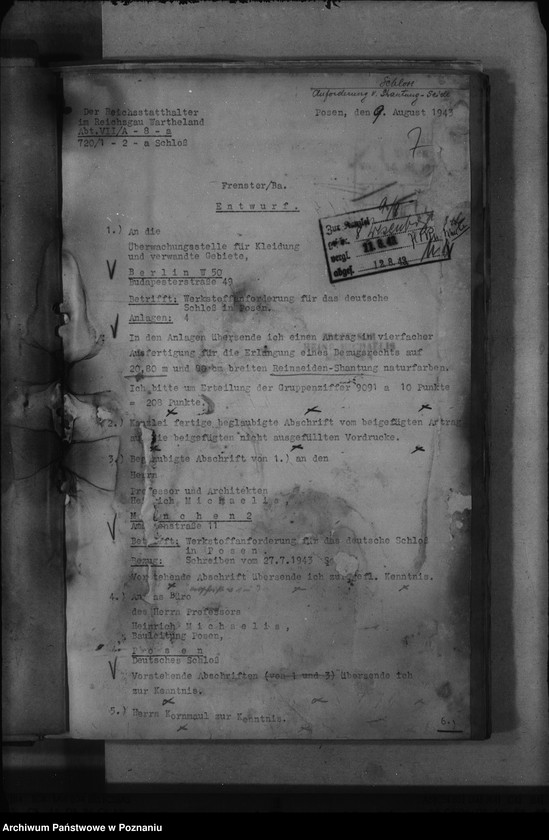 Schloss
Anforderung v. Shantung-Seide
Der Reichsstatthalter
im Reichsgau Wartheland
Abt.VII/A - 8 - a
720/1 - 2 - a Schloß
Posen, den 9. August 1943
7
Frenster/Ba.
Entwurf.
11.8.43
vergl.
abges. 12.8.43
1.) An die
Überwachungsstelle für Kleidung
und verwandte Gebiete,
Berlin W 50
Budapesterstraße 49
Betrifft: Werkstoffanforderung für das deutsche
Schloß in Posen.
Anlagen: 4
In den Anlagen übersende ich einen Antrag in vierfacher
Ausfertigung für die Erlangung eines Bezugsrechts auf
20,80 m und 80 cm breiten Reinseiden-Shantung naturfarben.
Ich bitte um Erteilung der Gruppenziffer 9091 a 10 Punkte
= 208 Punkte.
2.) Kanzlei fertige beglaubigte Abschrift vom beigefügten Antrag
auf die beigefügten nicht ausgefüllten Vordrucke.
3.) Beglaubigte Abschrift von 1.) an den
Herrn
Professor und Architekten
Heinrich Michaelis,
München 2
straße 11
Betrifft: Werkstoffanforderung für das deutsche Schloß
in Posen.
Bezug: Schreiben vom 27.7.1943
Vorstehende Abschrift übersende ich zur gefl. Kenntnis.
4.) An das Büro
des Herrn Professors
Heinrich Michaelis,
Bauleitung Posen,
Posen
Deutsches Schloß
Vorstehende Abschriften (von 1 und 3) übersende ich
zur Kenntnis.
5.) Herrn Kornmaul zur Kenntnis.
6.)
Archiwum Państwowe w Poznaniu